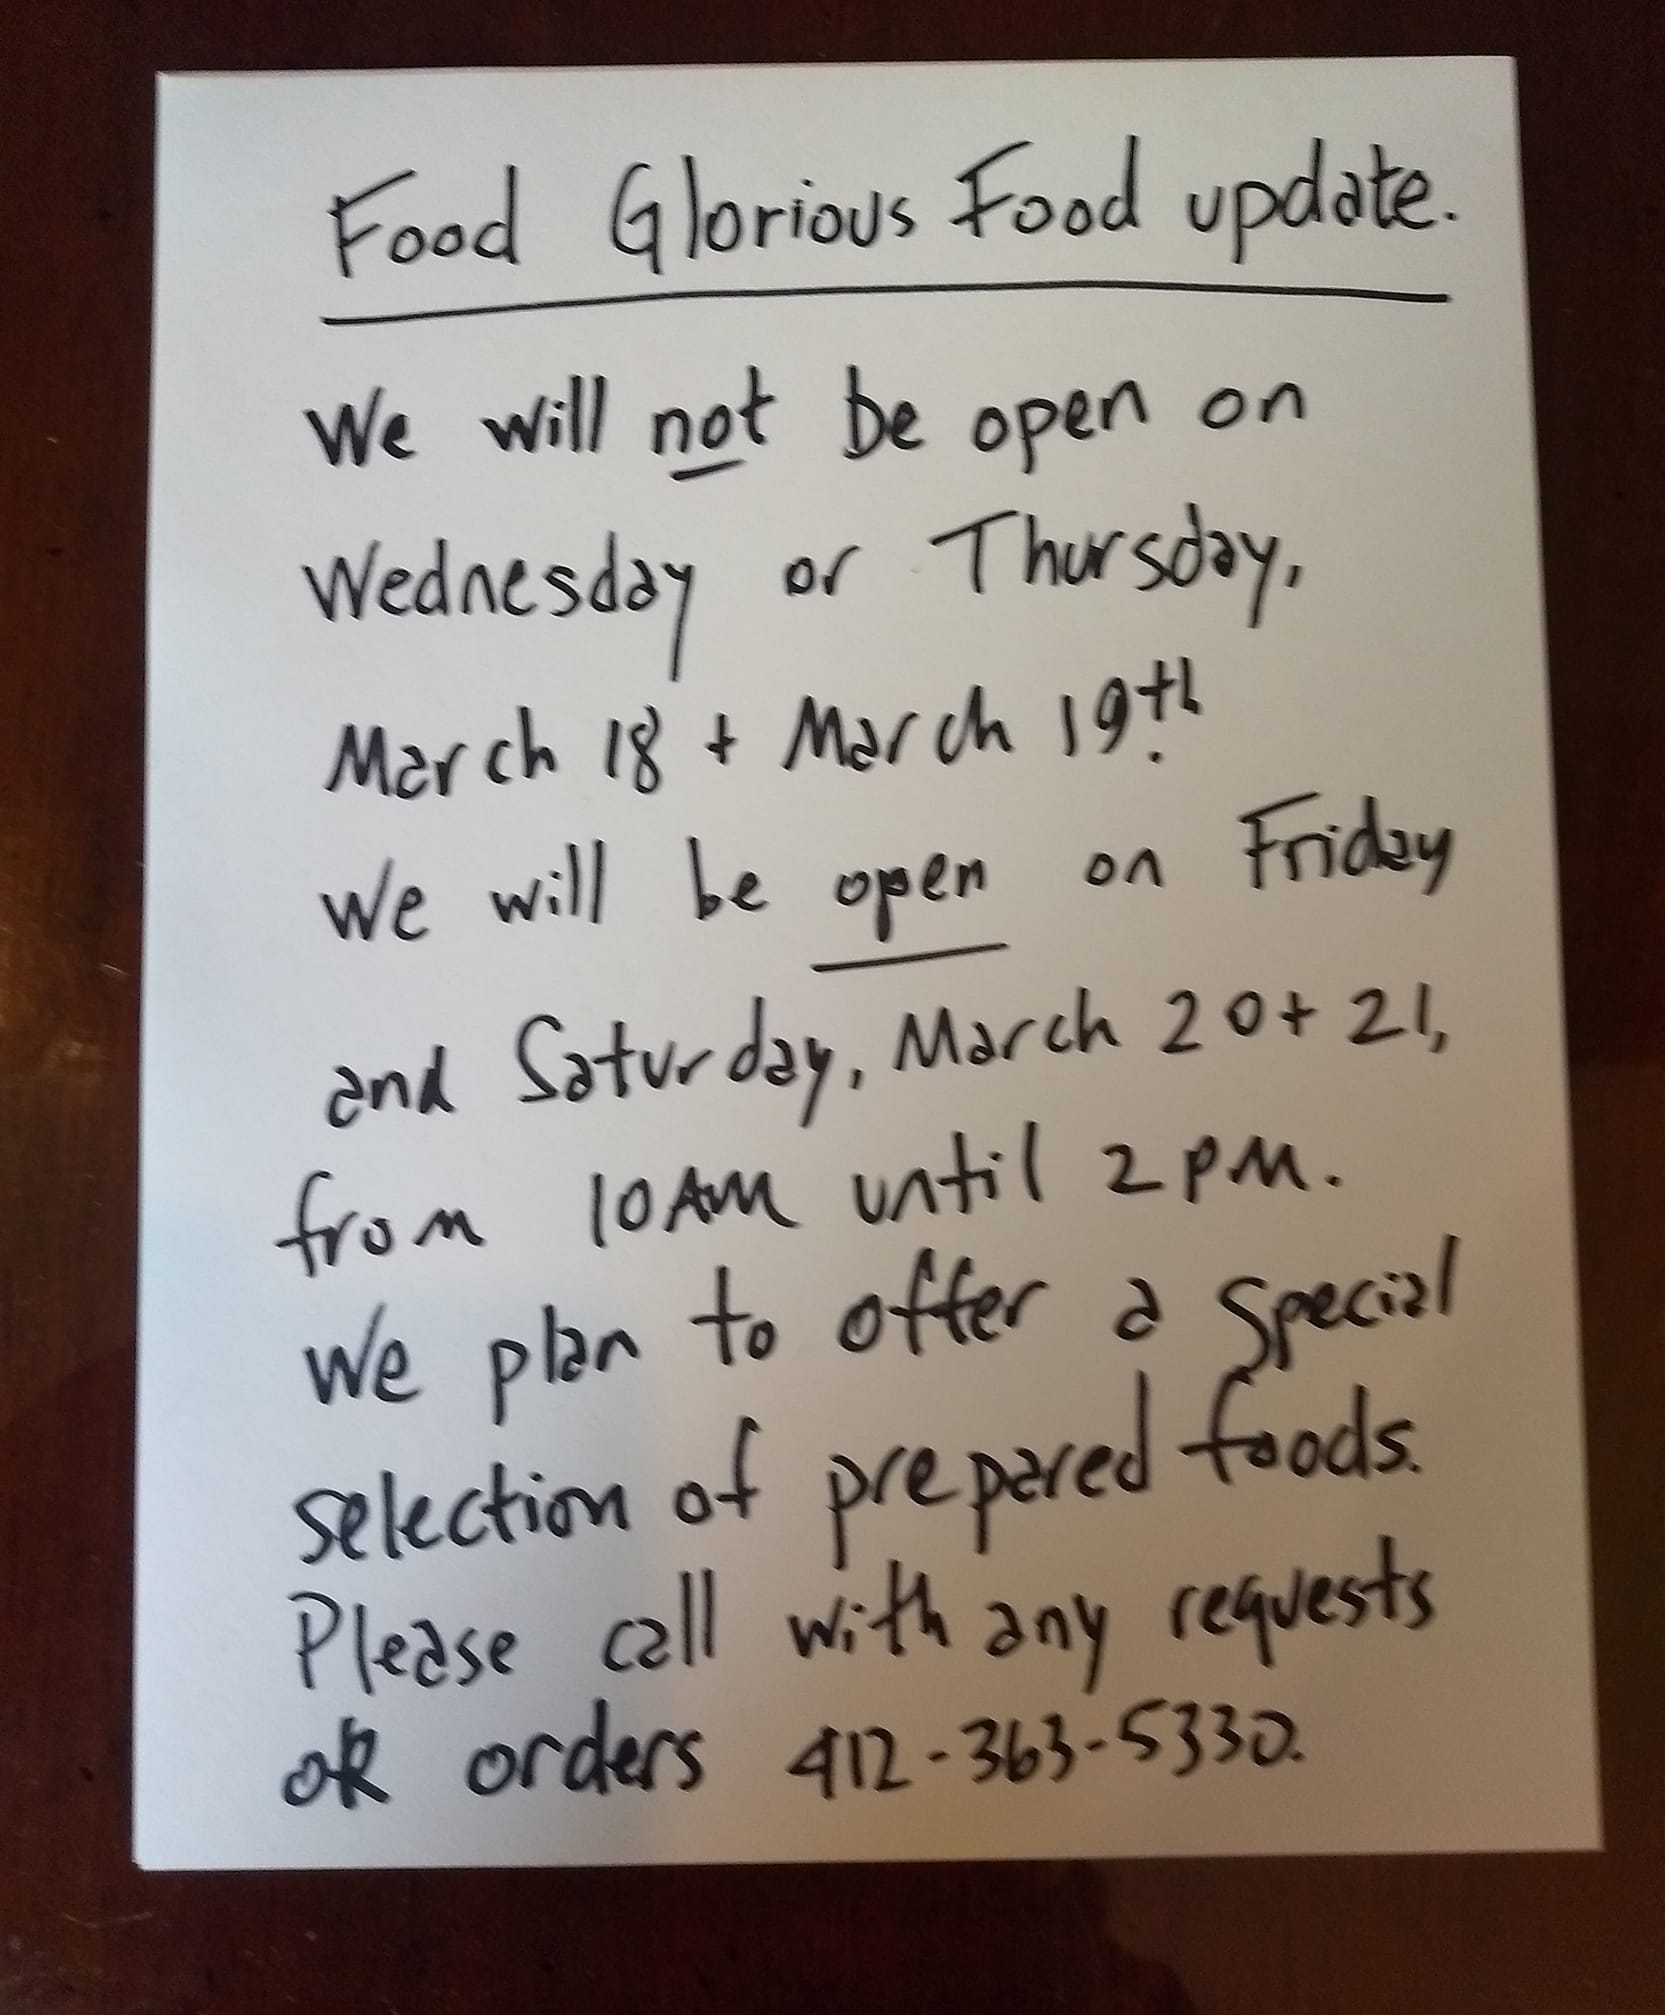 Food Glorious Food update.
We will not be open on
Wednesday or Thursday,
March 18 + March 19th.
We will be open on Friday
and Saturday, March 20 + 21,
from 10AM until 2PM.
We plan to offer a special
selection of prepared foods.
Please call with any requests
oR orders 412-363-5330.